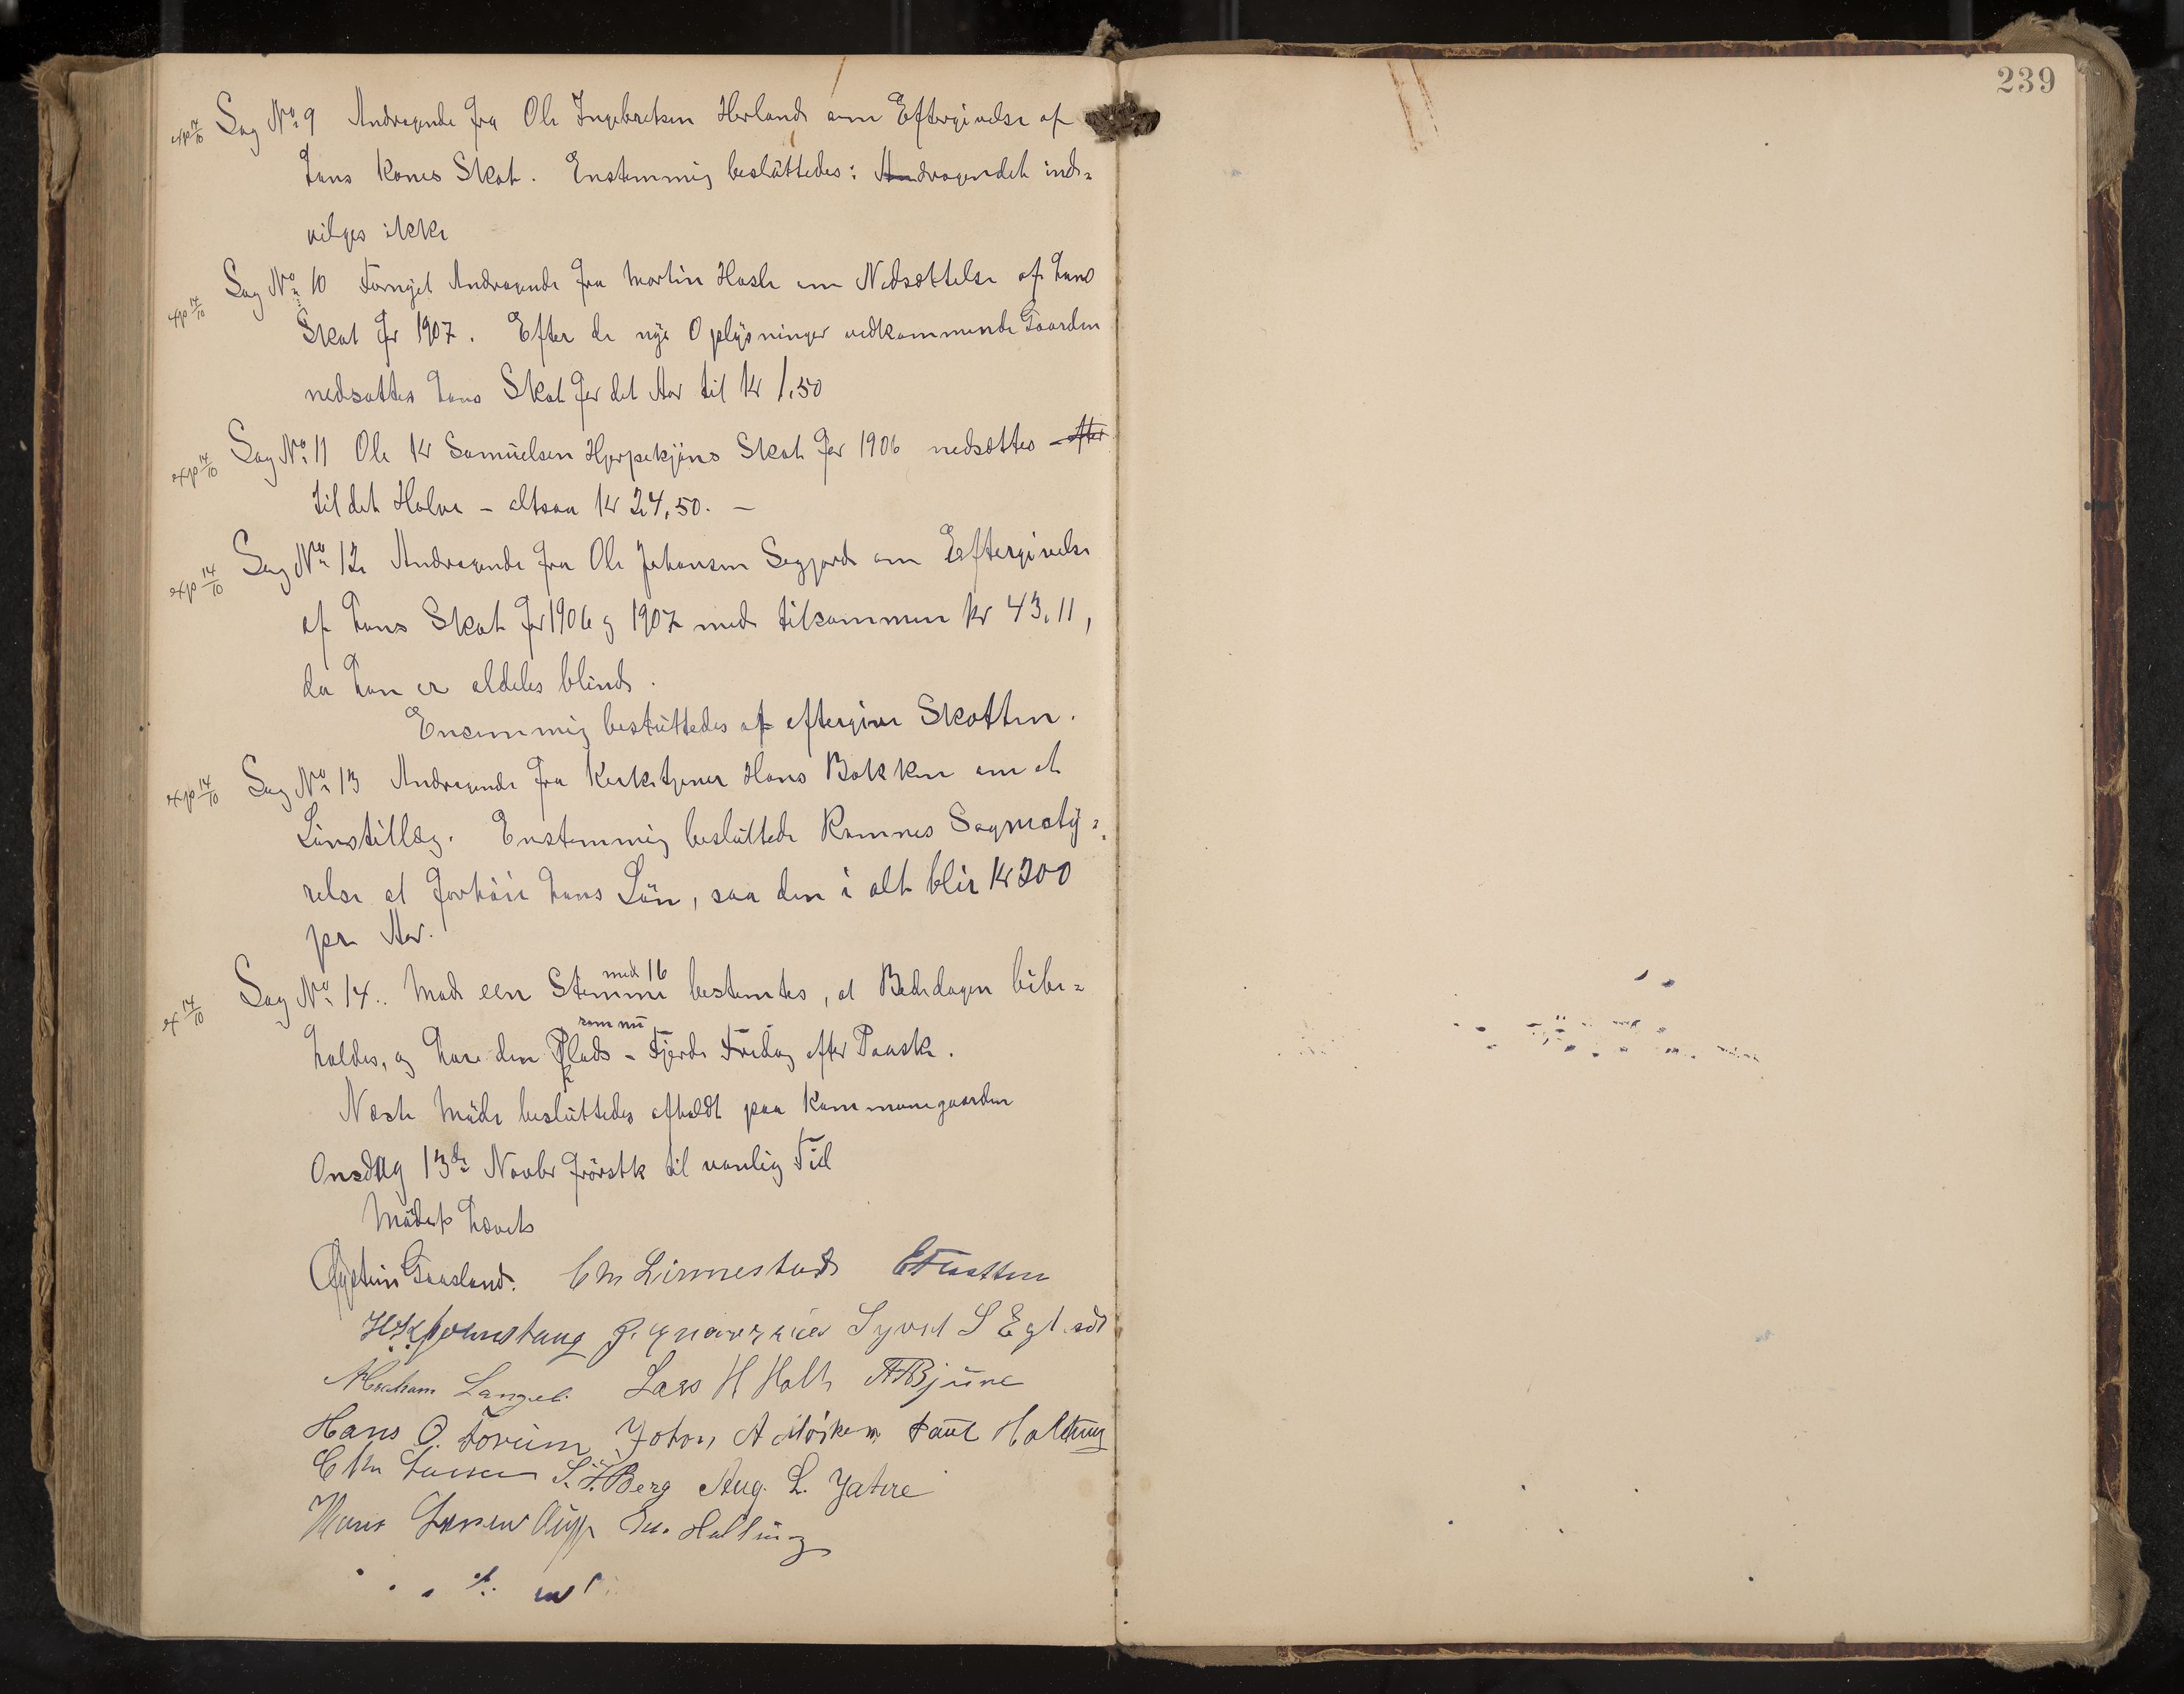 239
exp 14/10 Sag No 9 Andragende fra Ole Ingebretsen Herland om Eftergivelse af
hans Kones Skat. Enstemmig besluttedes: Andragendet ind=
vilges ikke
exp 14/10 Sag No 10 Fornyet Andragende fra Martin Hasle om Nedsættelse af hans
Skat for 1907. Efter de nye Oplysninger vedkommende Gaarden
nedsattes hans Skat for det Aar til Kr 1,50
exp 14/10 Sag No 11 Ole Kr Samuelsen Hjerpekjöns Skat for 1906 nedsættes efter
til det Halve – altsaa Kr 24,50. –
exp 14/10 Sag No 12 Andragende fra Ole Johansen Segjord om Eftergivelse
af hans Skat for 1906 og 1907 med tilsammen Kr 43,11,
da han er aldeles blind.
Ensemmig besluttedes at eftergive Skatten.
exp 14/10 Sag No 13 Andragende fra Kirketjener Hans Bakken om et
Lönstillæg. Enstemmig besluttede Ramnes Sognesty=
relse at forhöie hans Lön, saa den i alt blir Kr 200
pr Aar.
ex 14/10 Sag No 14. Mod een Stemme med 16 bestemtes, at Bededagen bibe=
holdes, og have den Plads som nu – Fjerde Fredag efter Paaske.
Næste Möde besluttedes afholdt paa Kommunegaarden
Onsdag 13de Novbr förstk til vanlig Tid
Mödet hævet
Øystein Gaasland. C M Linnestad E Tveitten
Syvert S
Abraham Lars H Holt A Bjune
Hans O. Forum Johan A Paul Halting
C M Larsen S. F. Berg Aug. L. Jahre
Hans Larsen Halling